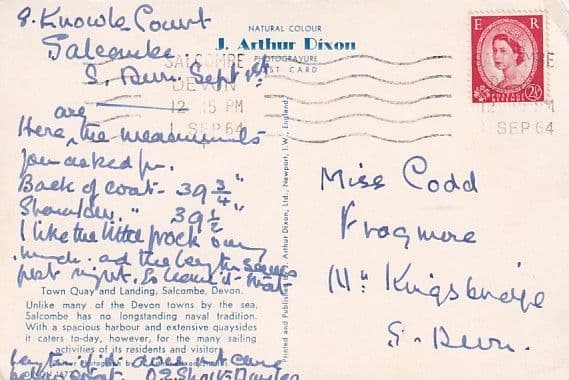 8. Knowle Court
Salcombe
S. Devn. Sept 1st
are
Here, the measurments
you asked for.
Back of coat - 39 3/4 "
Shoulder. " 39 1/2
I like the little frock very
much. ad the length seems
just right. So leave it that
length if it does not
NATURAL COLOUR
J. Arthur Dixon
PHOTOGRAVURE
POST CARD
SALCOMBE
DEVON
12 15 PM
1 SEP 64
E R
POSTAGE REVENUE
2½D
SEP 64
Printed and Published by J. Arthur Dixon, Ltd., Newport, I.W., England.
Miss Codd
Frogmore
Nr Kingsbridge
S. Devn.
Town Quay and Landing, Salcombe, Devon.
Unlike many of the Devon towns by the sea,
Salcombe has no longstanding naval tradition.
With a spacious harbour and extensive quaysides
it caters to-day, however, for the many sailing
activities of its residents and visitors